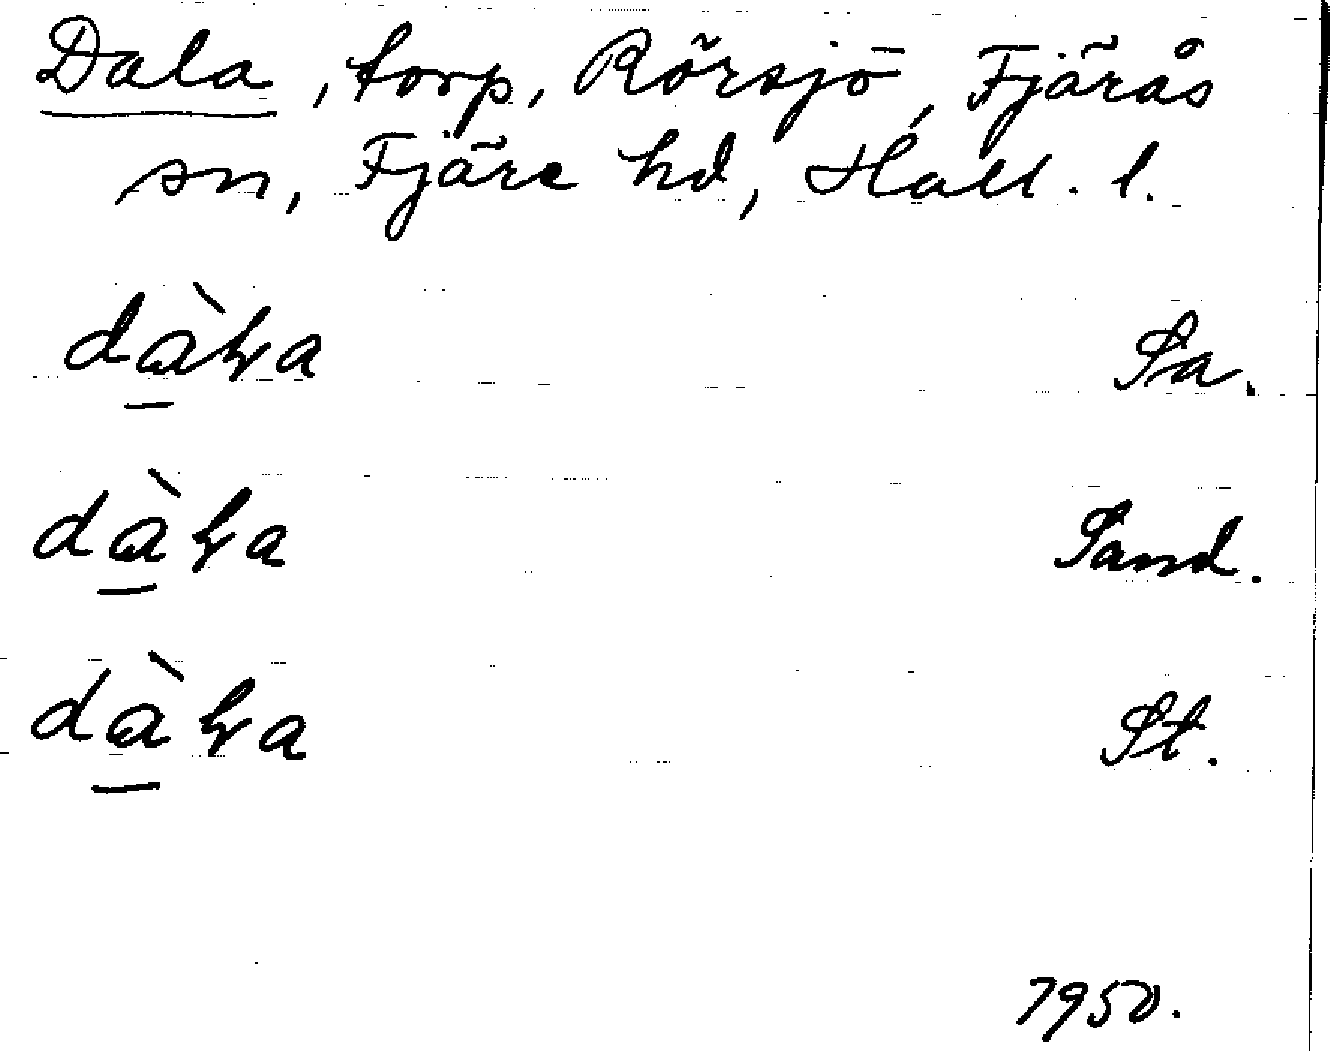 Dala, torp, Rörsjö, Fjärås
sn, Fjäre hd, Hall. l.
dàɫa Sa.
dàɫa Sand.
dàɫa St.
7950.